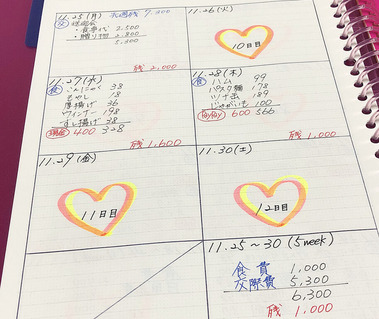 11.25(月) 先週残 7,300
交 送別会
・食事代 2,500
・贈り物 2,800
5,300
残 2,000
11.26(火)
10日目
11.27(水)
食 こんにゃく 38
もやし 18
厚揚げ 36
ウィンナー 198
すし揚げ 38
現金 400 328
残 1,600
11.28(木)
食 ハム 99
パスタ麺 178
ツナ缶 189
じゃがいも 100
PayPay 600 566
残 1,000
11.29(金)
11日目
11.30(土)
12日目
11.25~30 (5week)
食費 1,000
交際費 5,300
6,300
残 1,000